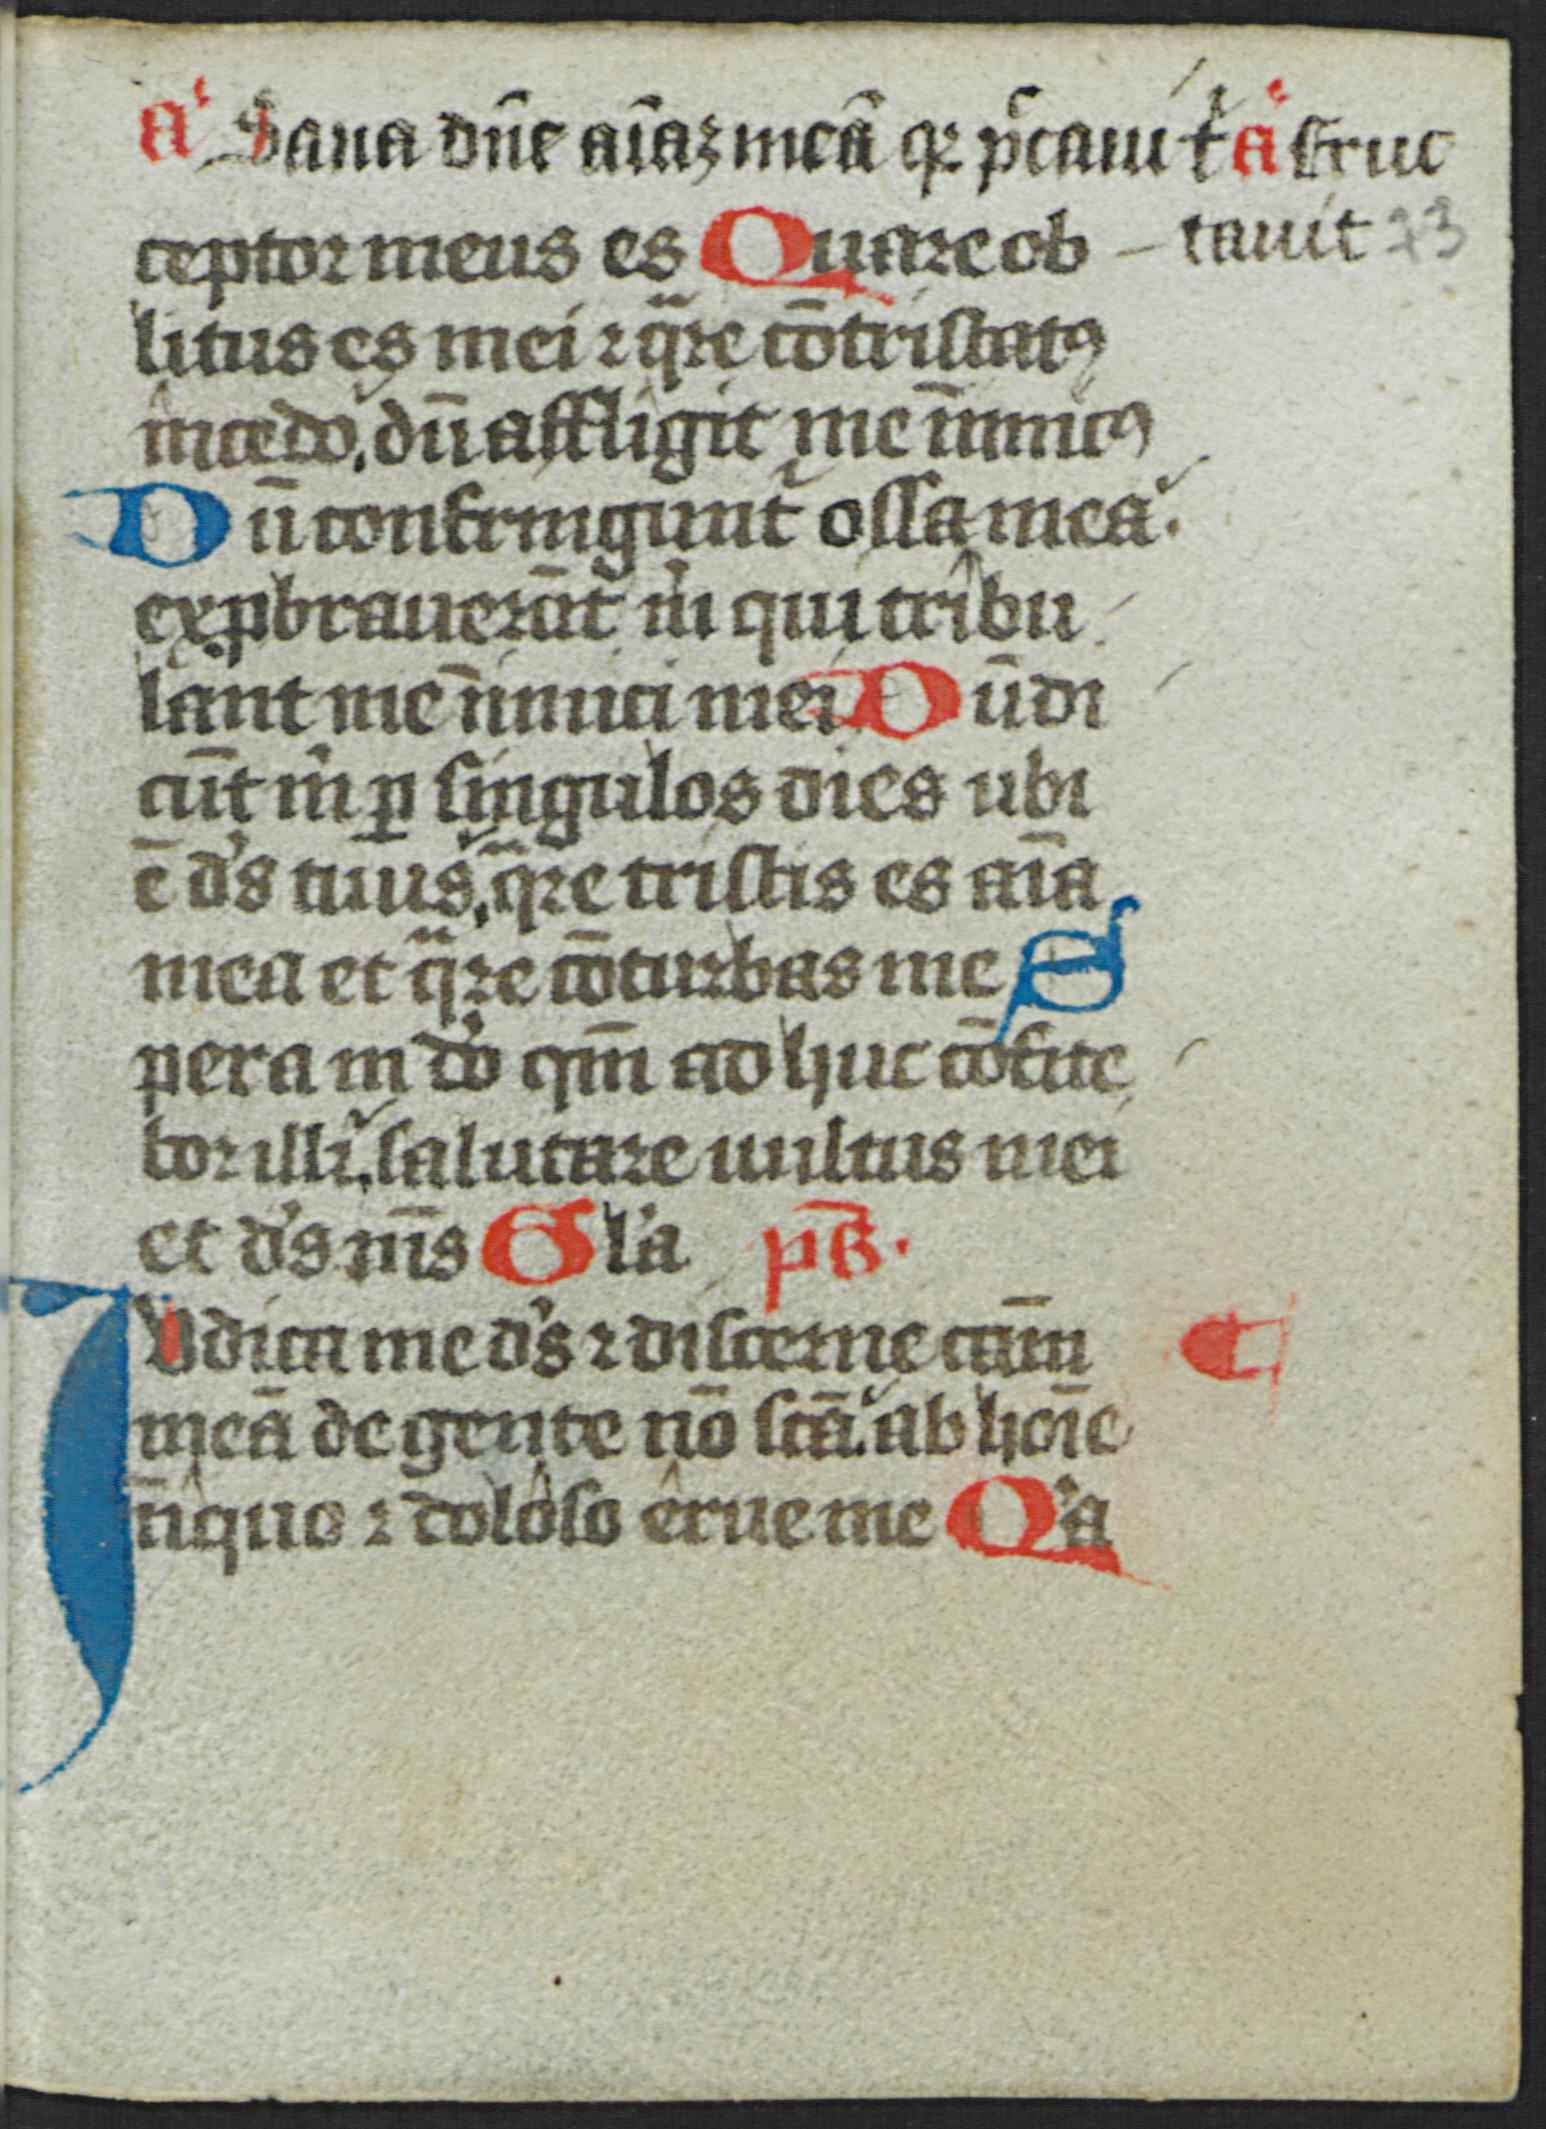 aˢ Sana dn̄e aīaꝫ meā qꝛ pͨcaui tͥ aˢ Eruc
ceptor meus es Quare ob – tauit 23
litus es mei ⁊ qͣre cōtristatꝰ
incedo. dū affligit me īimicꝰ
Dū confringunt᷑ ossa mea.
exꝓbrauerāt m̄ qui tribu
lant me īimici mei Dū di
cūt m̄ ꝑ singulos dies ubi
ē d's tuus. qͣre tristis es aīa
mea et qͣre cōturbas me S
pera in d'o qm̄ adhuc cōfite
bor illi. salutare uultus mei
et d's m̄s Gl'a pß.
IUdica me d's ⁊ discerne cām
meā de gente nō scā. ab hoīe
īiquo ⁊ doloso erue me Qͥa